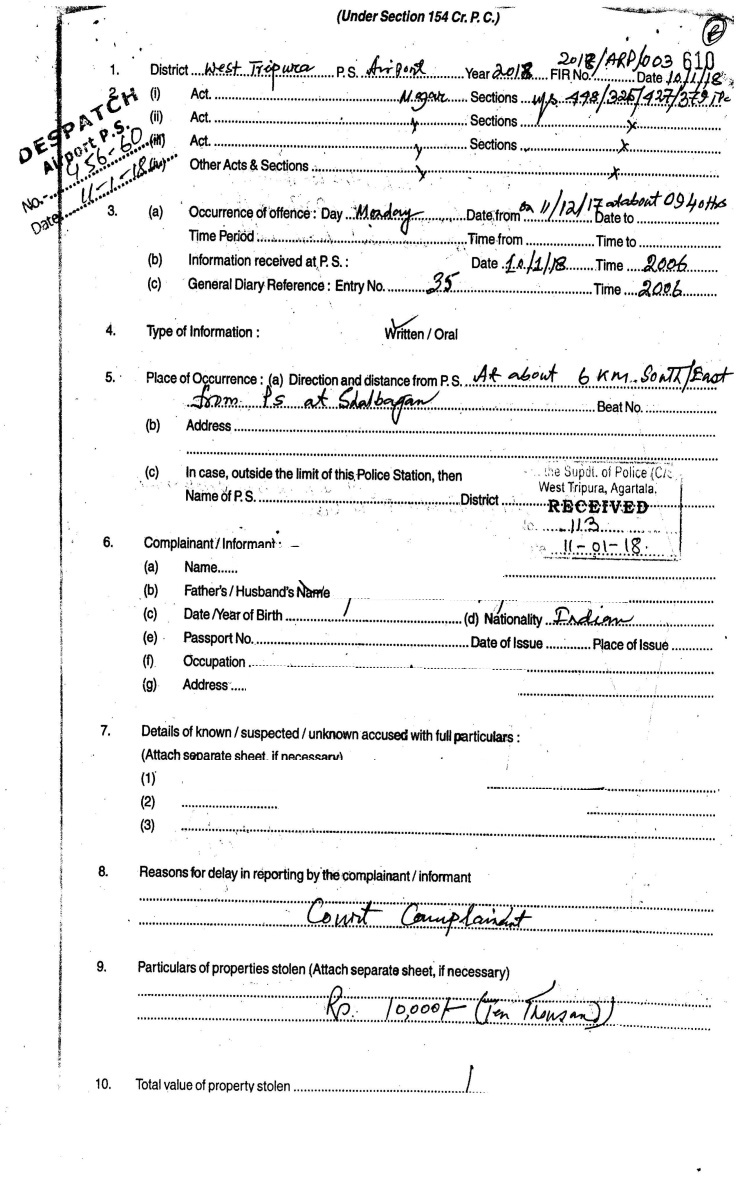 (Under Section 154 Cr. P. C.)
1. District ... West Tripura ... P.S. Airport ... Year 2018 ... FIR No. 2018/ARP/003 610 Date 10/1/18
DESPATCH
Airport P.S.
No.- 456-60
Date 11-1-18
2. (i) Act. ... Sections ... u/s. 448/325/427/379 IPC
(ii) Act. ... x ... Sections ... x
(iii) Act. ... x ... Sections ... x
(iv) Other Acts & Sections ... x ... x
3. (a) Occurrence of offence : Day ... Monday ... Date from on 11/12/17 at about 0940 hrs Date to ...
Time Period : ... Time from ... Time to ...
(b) Information received at P. S. : Date 10/1/18 ... Time ... 2006
(c) General Diary Reference : Entry No. ... 35 ... Time ... 2006
4. Type of Information : Written / Oral
5. Place of Occurrence : (a) Direction and distance from P. S. ... At about 6 KM South/East
from PS at Shalbagan ... Beat No. ...
(b) Address ...
(c) In case, outside the limit of this Police Station, then
Name of P. S. ... District ...
the Supdt. of Police
West Tripura, Agartala.
RECEIVED
No. 113
11-01-18.
6. Complainant / Informant : –
(a) Name......
(b) Father's / Husband's Name
(c) Date /Year of Birth ... / ... (d) Nationality .. Indian
(e) Passport No. ... Date of Issue ... Place of Issue ...
(f) Occupation ...
(g) Address .....
7. Details of known / suspected / unknown accused with full particulars :
(Attach separate sheet, if necessary)
(1)
(2) ...
(3) ...
8. Reasons for delay in reporting by the complainant / informant
Court Complaint
9. Particulars of properties stolen (Attach separate sheet, if necessary)
Rs. 10,000/- (Ten Thousand)
10. Total value of property stolen ... /